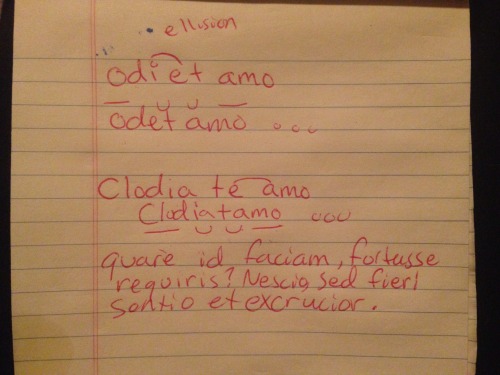 ellision
odi et amo
odet amo ...
Clodia te amo
Clodiatamo ...
quare id faciam, fortasse
requiris? Nescio, sed fieri
sentio et excrucior.